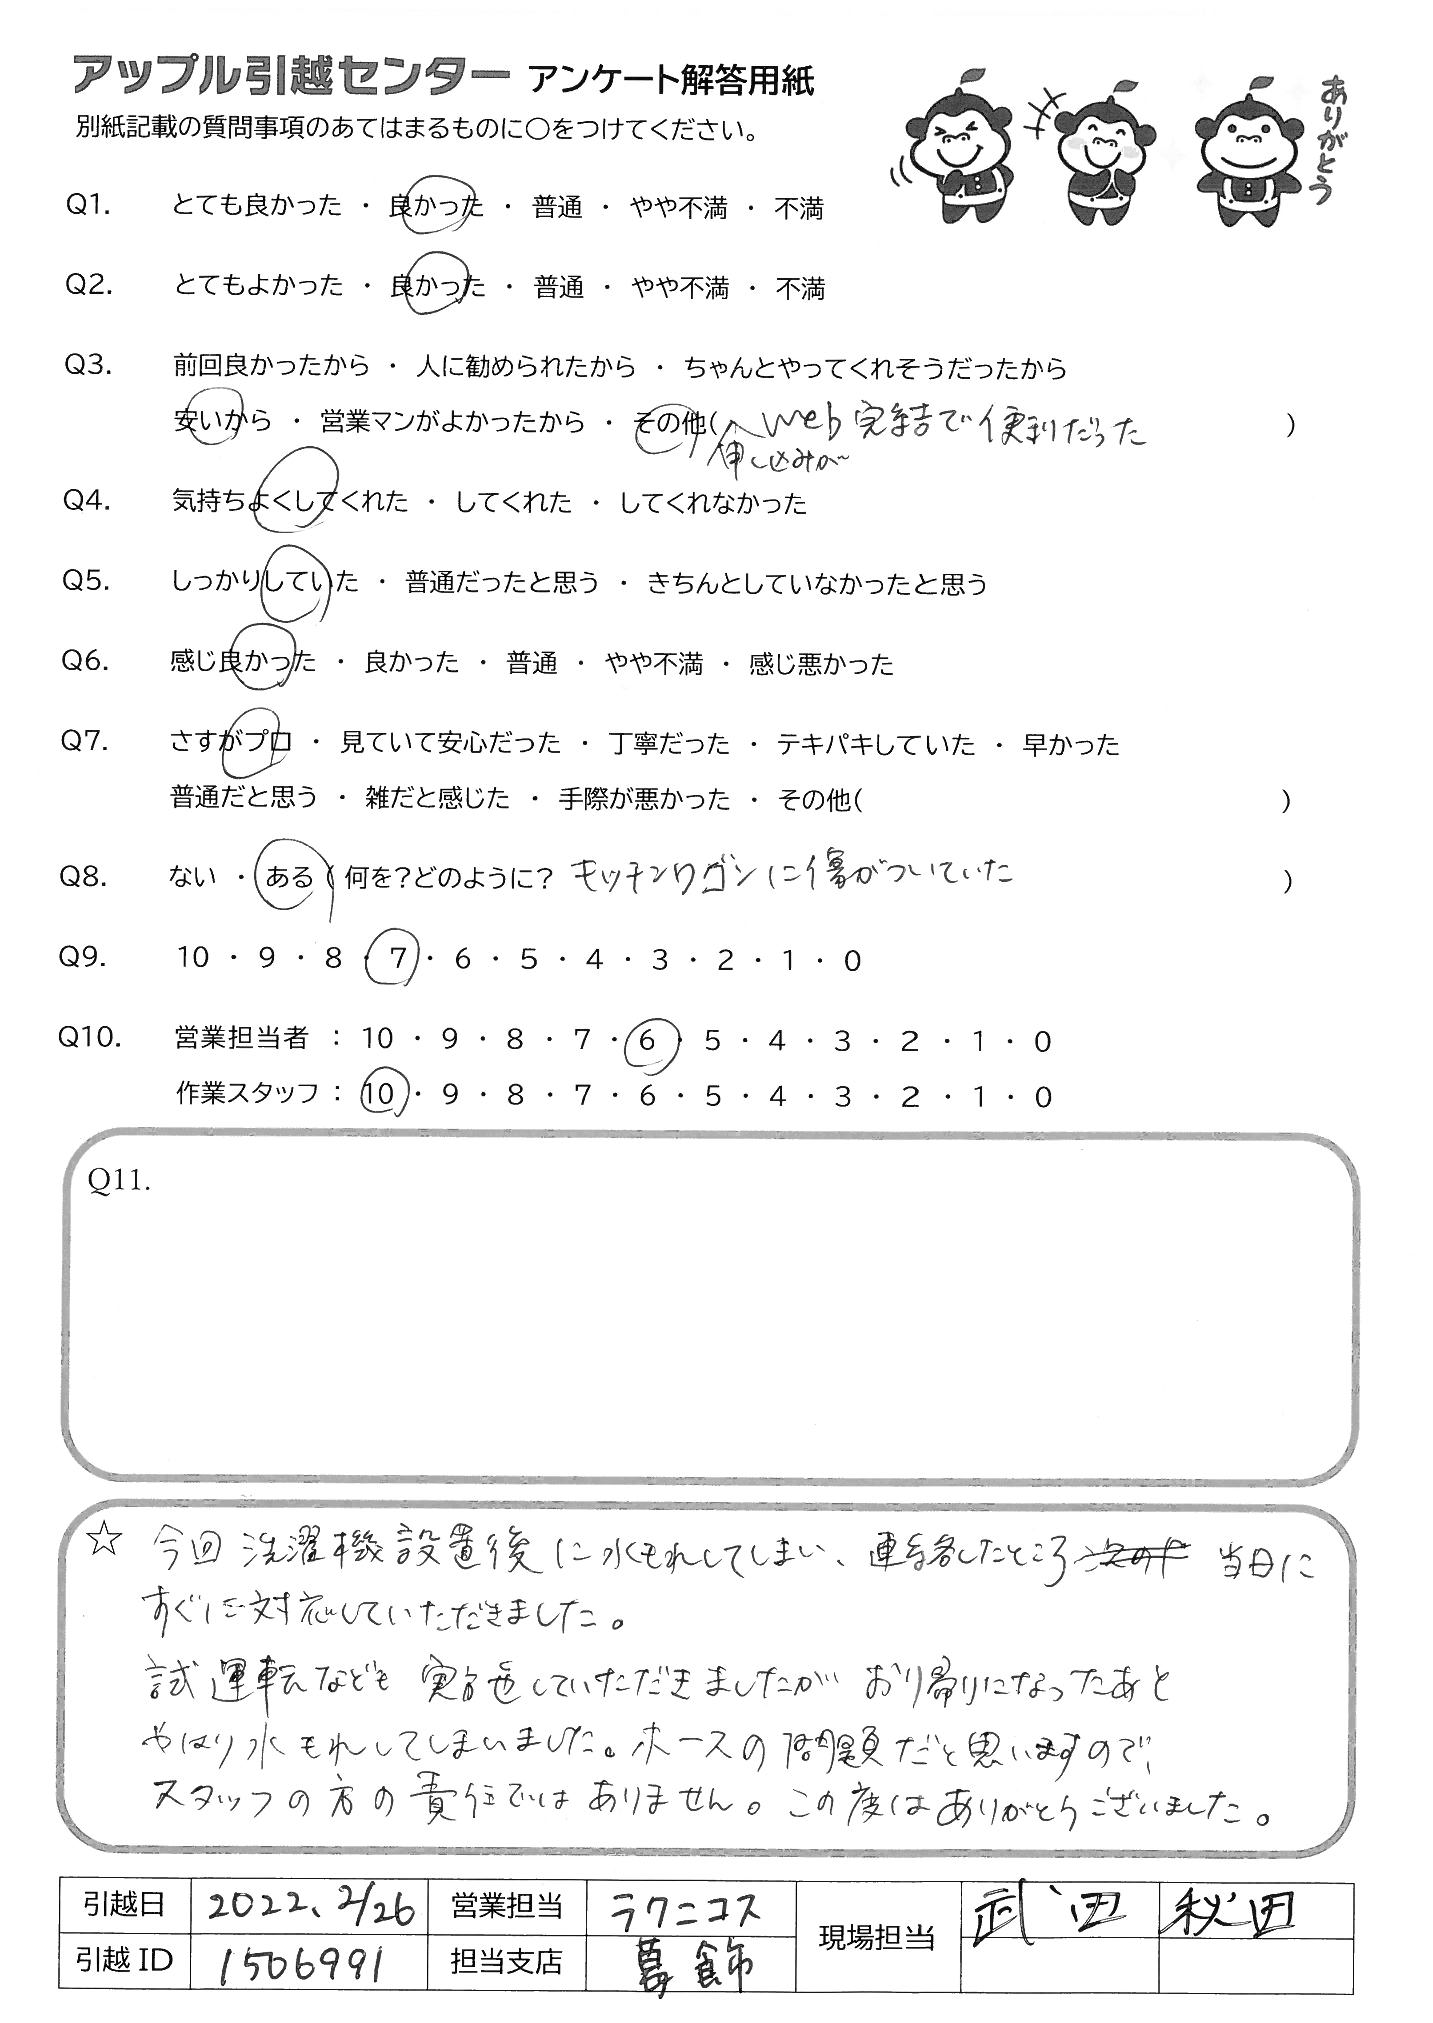 アップル引越センター アンケート解答用紙
ありがとう
別紙記載の質問事項のあてはまるものに○をつけてください。
Q1. とても良かった ・ 良かった ・ 普通 ・ やや不満 ・ 不満
Q2. とてもよかった ・ 良かった ・ 普通 ・ やや不満 ・ 不満
Q3. 前回良かったから ・ 人に勧められたから ・ ちゃんとやってくれそうだったから
安いから ・ 営業マンがよかったから ・ その他( Web完結で便利だった )
申し込みが
Q4. 気持ちよくしてくれた ・ してくれた ・ してくれなかった
Q5. しっかりしていた ・ 普通だったと思う ・ きちんとしていなかったと思う
Q6. 感じ良かった ・ 良かった ・ 普通 ・ やや不満 ・ 感じ悪かった
Q7. さすがプロ ・ 見ていて安心だった ・ 丁寧だった ・ テキパキしていた ・ 早かった
普通だと思う ・ 雑だと感じた ・ 手際が悪かった ・ その他( )
Q8. ない ・ ある ( 何を?どのように? キッチンワゴンに傷がついていた )
Q9. 10 ・ 9 ・ 8 ・ 7 ・ 6 ・ 5 ・ 4 ・ 3 ・ 2 ・ 1 ・ 0
Q10. 営業担当者 : 10 ・ 9 ・ 8 ・ 7 ・ 6 ・ 5 ・ 4 ・ 3 ・ 2 ・ 1 ・ 0
作業スタッフ : 10 ・ 9 ・ 8 ・ 7 ・ 6 ・ 5 ・ 4 ・ 3 ・ 2 ・ 1 ・ 0
Q11.
☆ 今回洗濯機設置後に水もれしてしまい、連絡したところ 当日に
すぐに対応していただきました。
試運転なども実施していただきましたがお帰りになったあと
やはり水もれしてしまいました。ホースの問題だと思いますので、
スタッフの方の責任ではありません。この度はありがとうございました。
引越日 2022、2/26 営業担当 ラクニコス 現場担当 武田 秋田
引越ID 1506991 担当支店 葛飾